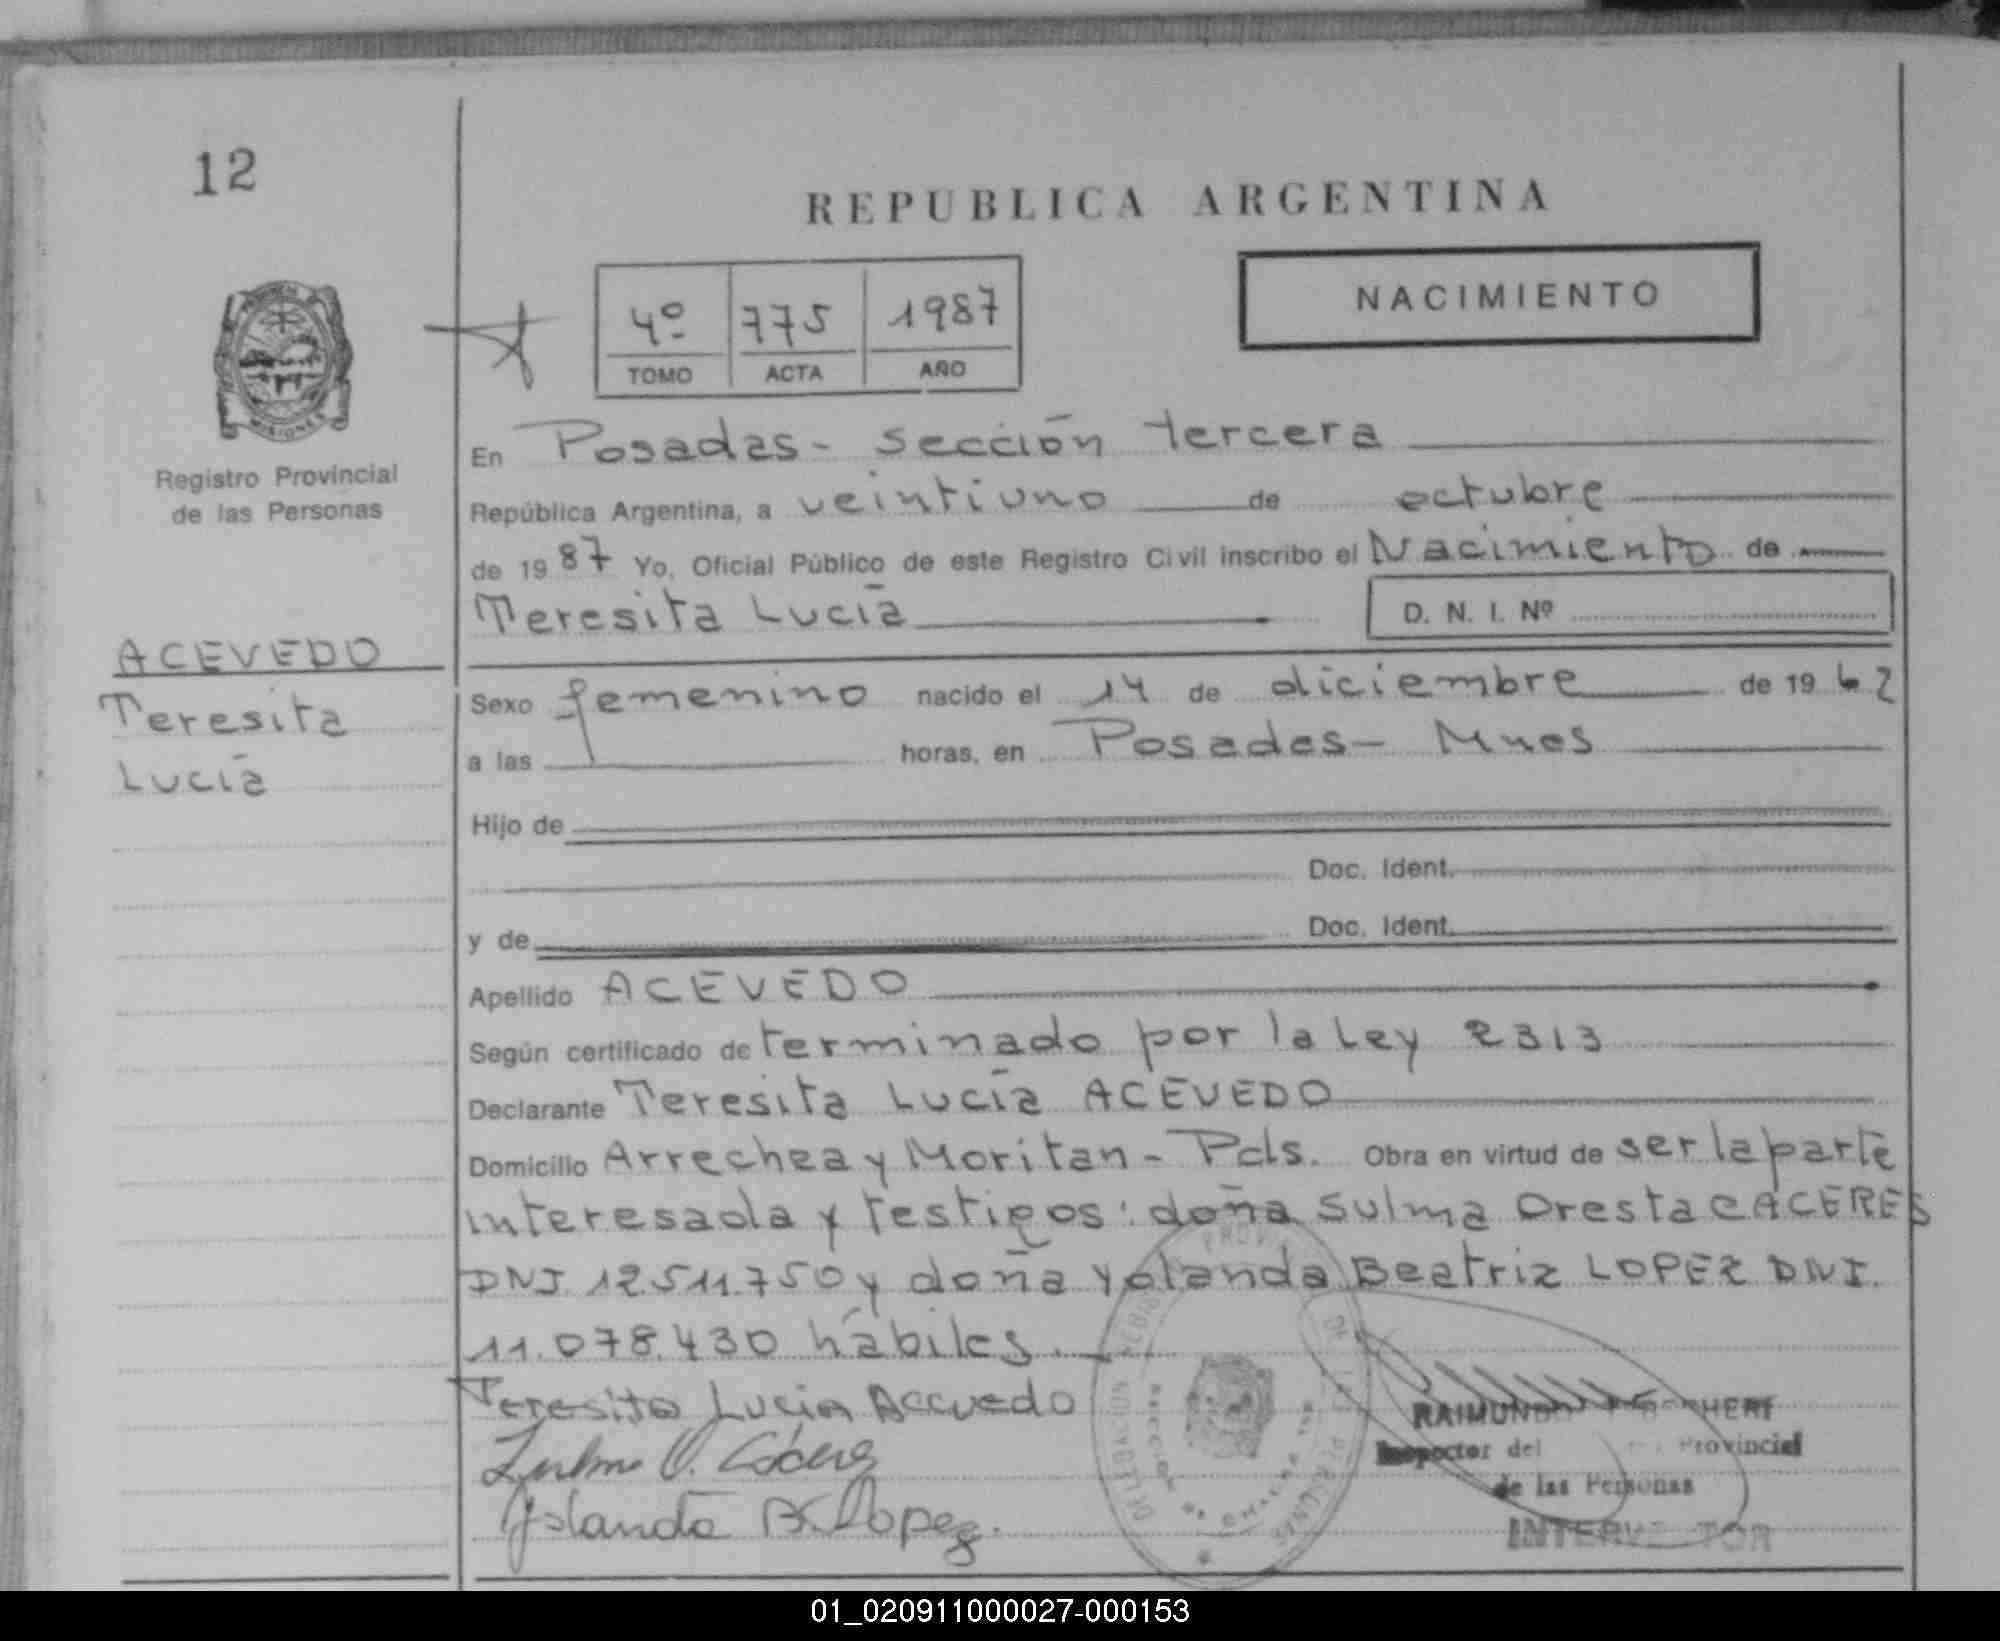 12
REPUBLICA ARGENTINA
NACIMIENTO
4º 775 1987
TOMO ACTA AÑO
MISIONES
Registro Provincial
de las Personas
ACEVEDO
Teresita
Lucía
En Posadas - sección tercera
República Argentina, a veintiuno de octubre
de 1987 Yo, Oficial Público de este Registro Civil inscribo el Nacimiento de
Teresita Lucía D. N. I. Nº
Sexo femenino nacido el 14 de diciembre de 1962
a las horas, en Posadas - Mnes
Hijo de
Doc. Ident.
y de Doc. Ident.
Apellido ACEVEDO
Según certificado determinado por la Ley 2313
Declarante Teresita Lucía ACEVEDO
Domicilio Arrechea y Moritan - Pds. Obra en virtud de ser la parte
interesada y testigos: doña Sulma Oresta CACERES
DNI. 12.511.750 y doña Yolanda Beatriz LOPEZ DNI.
11.078.430 hábiles.
Teresita Lucia Acevedo
Zulma O. Cáceres
Yolanda B. Lopez.
RAIMUNDO
Inspector del Provincial
de las Personas
01_020911000027-000153